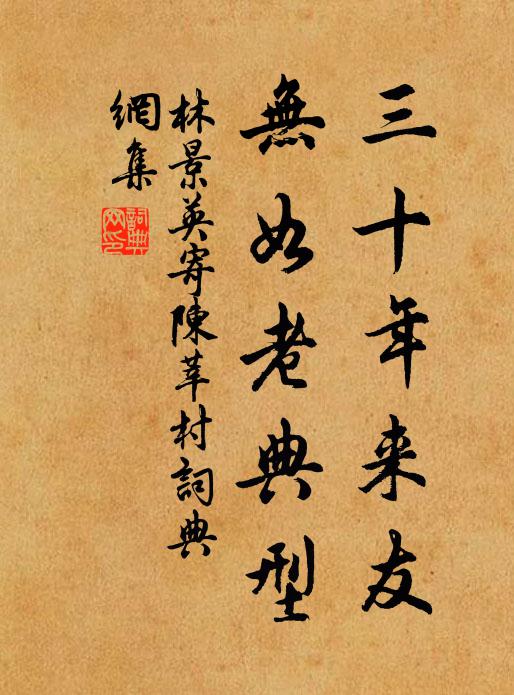 三十年来友
無如老典型
林景英寄陳莘村詞典
網集
詞典
网印